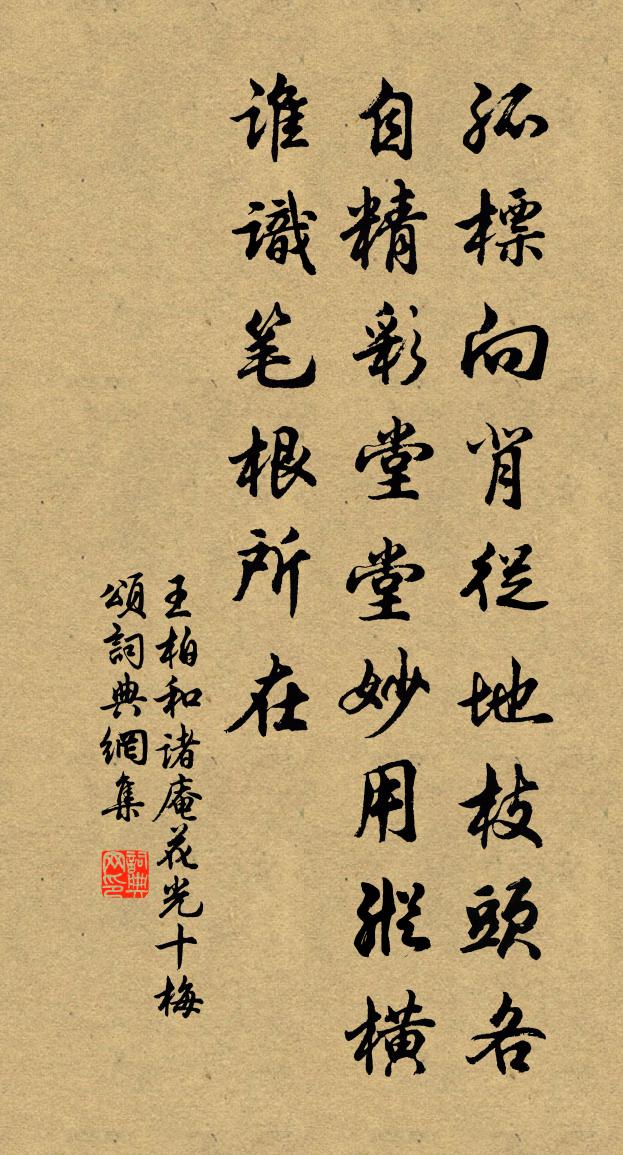 孤標向背從地枝頭各
自精彩堂堂妙用縱橫
誰識笔根所在
王柏和诸庵花光十梅
頌詞典網集
詞典网印